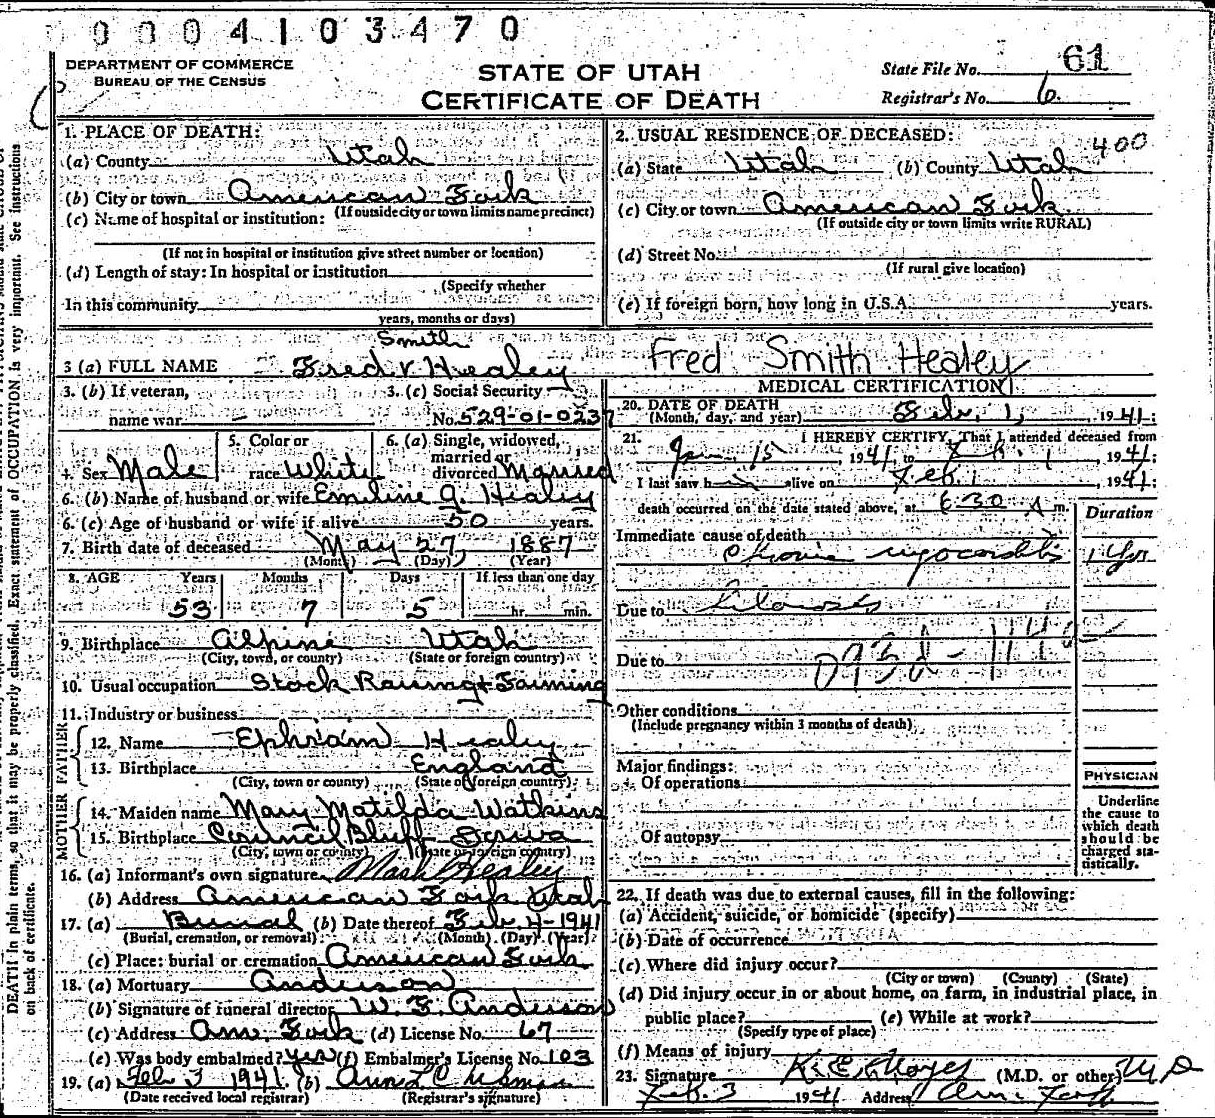 0004103470
DEPARTMENT OF COMMERCE
BUREAU OF THE CENSUS
STATE OF UTAH
CERTIFICATE OF DEATH
State File No. 61
Registrar's No. 6.
1. PLACE OF DEATH:
(a) County Utah
(b) City or town American Fork
(c) Name of hospital or institution: (If outside city or town limits name precinct)
(If not in hospital or institution give street number or location)
(d) Length of stay: In hospital or institution
(Specify whether
In this community
years, months or days)
2. USUAL RESIDENCE OF DECEASED: 400
(a) State Utah (b) County Utah
(c) City or town American Fork
(If outside city or town limits write RURAL)
(d) Street No.
(If rural give location)
(e) If foreign born, how long in U.S.A. years.
Smith
3 (a) FULL NAME Fred Healey Fred Smith Healey
3. (b) If veteran,
name war —
3. (c) Social Security
No. 529-01-0237
4. Sex Male
5. Color or
race White
6. (a) Single, widowed,
married or
divorced Married
6. (b) Name of husband or wife Emeline G. Healey
6. (c) Age of husband or wife if alive 50 years.
7. Birth date of deceased May 27, 1887
(Month) (Day) (Year)
8. AGE Years Months Days If less than one day
53 7 5 hr. min.
9. Birthplace Alpine Utah
(City, town, or county) (State or foreign country)
10. Usual occupation Stock Raising & Farming
11. Industry or business
FATHER
12. Name Ephriam Healey
13. Birthplace England
(City, town or county) (State of foreign country)
MOTHER
14. Maiden name Mary Matilda Watkins
15. Birthplace Council Bluff
(City, town or county) (State or foreign country)
16. (a) Informant's own signature Healey
(b) Address American Fork Utah
17. (a) Burial (b) Date thereof Feb. 4-1941
(Burial, cremation, or removal) (Month) (Day) (Year)
(c) Place: burial or cremation American Fork
18. (a) Mortuary Anderson
(b) Signature of funeral director W. F. Anderson
(c) Address Am. Fork (d) License No. 67
(e) Was body embalmed? yes (f) Embalmer's License No. 103
19. (a) Feb 3 1941. (b)
(Date received local registrar) (Registrar's signature)
MEDICAL CERTIFICATION
20. DATE OF DEATH
(Month, day, and year) Feb. 1, 1941:
21. I HEREBY CERTIFY, That I attended deceased from
Jan. 15, 1941 to Feb. 1, 1941:
I last saw h alive on Feb. 1, 1941:
death occurred on the date stated above, at 6:30 A m.
Duration
Immediate cause of death
Chronic myocarditis 1 Yr
Due to
Due to 093d -
Other conditions
(Include pregnancy within 3 months of death)
Major findings:
Of operations
Of autopsy
PHYSICIAN
Underline
the cause to
which death
should be
charged sta-
tistically.
22. If death was due to external causes, fill in the following:
(a) Accident, suicide, or homicide (specify)
(b) Date of occurrence
(c) Where did injury occur?
(City or town) (County) (State)
(d) Did injury occur in or about home, on farm, in industrial place, in
public place? (e) While at work?
(Specify type of place)
(f) Means of injury
23. Signature K. E. Noyes (M.D. or other) M D
Feb. 3 1941 Address Am. Fork
DEATH in plain terms, so that it may be properly classified. Exact statement of OCCUPATION is very important. See instructions
on back of certificate.